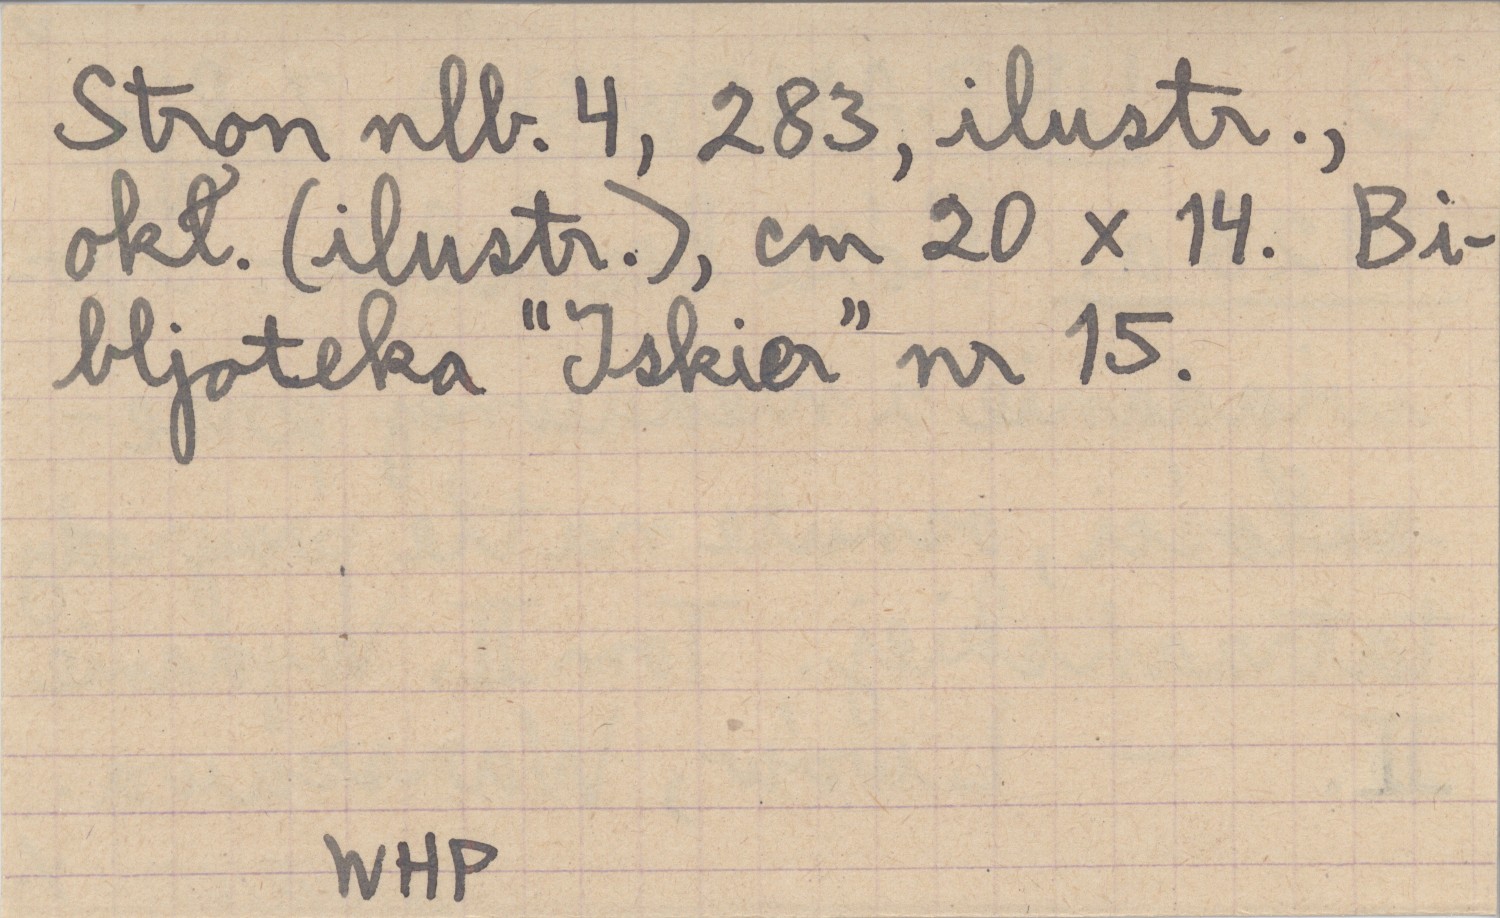 Stron nlb. 4, 283, ilustr.,
okł. (ilustr.), cm 20 x 14. Bi-
bljoteka "Iskier" nr 15.
WHP